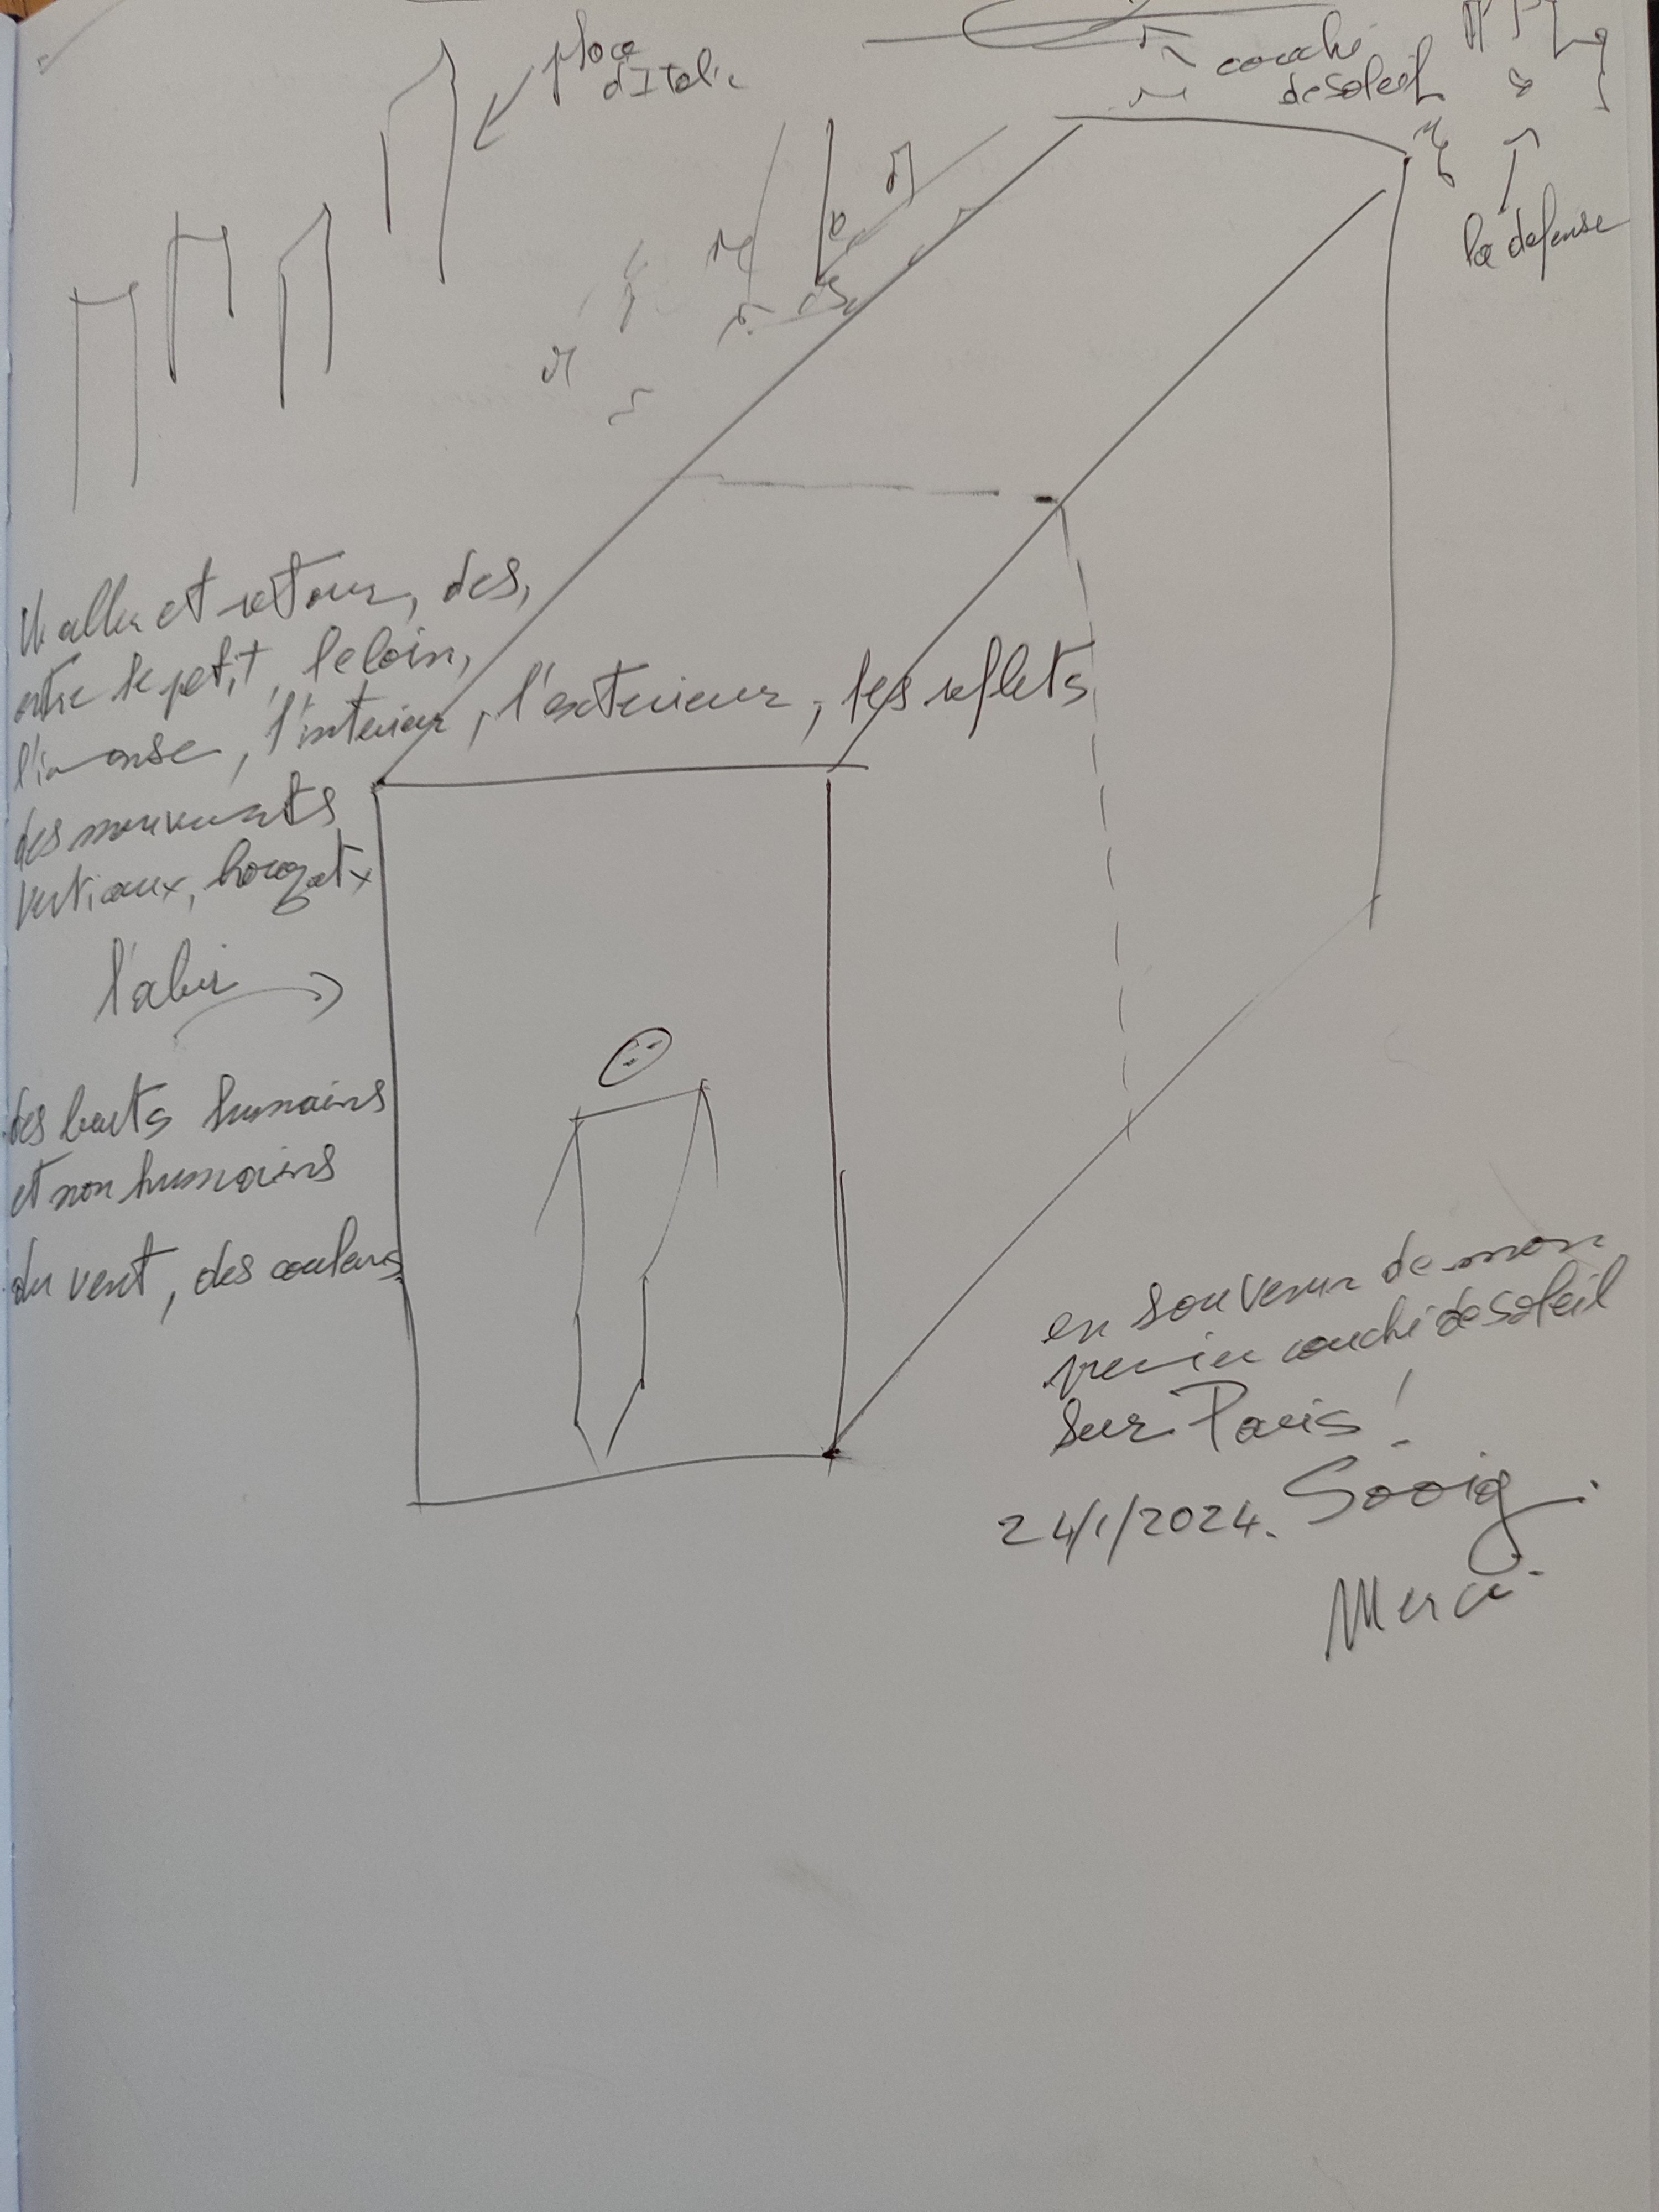 place
d'Italie
couché
de soleil
la défense
Un aller et retour, des,
entre le petit, le loin,
l'immense, l'intérieur, l'extérieur, les reflets
des mouvements
verticaux,
l'abri
des bruits humains
et non humains
du vent, des couleurs
en souvenir de mon
premier couché de soleil
sur Paris !
24/1/2024.
Merci